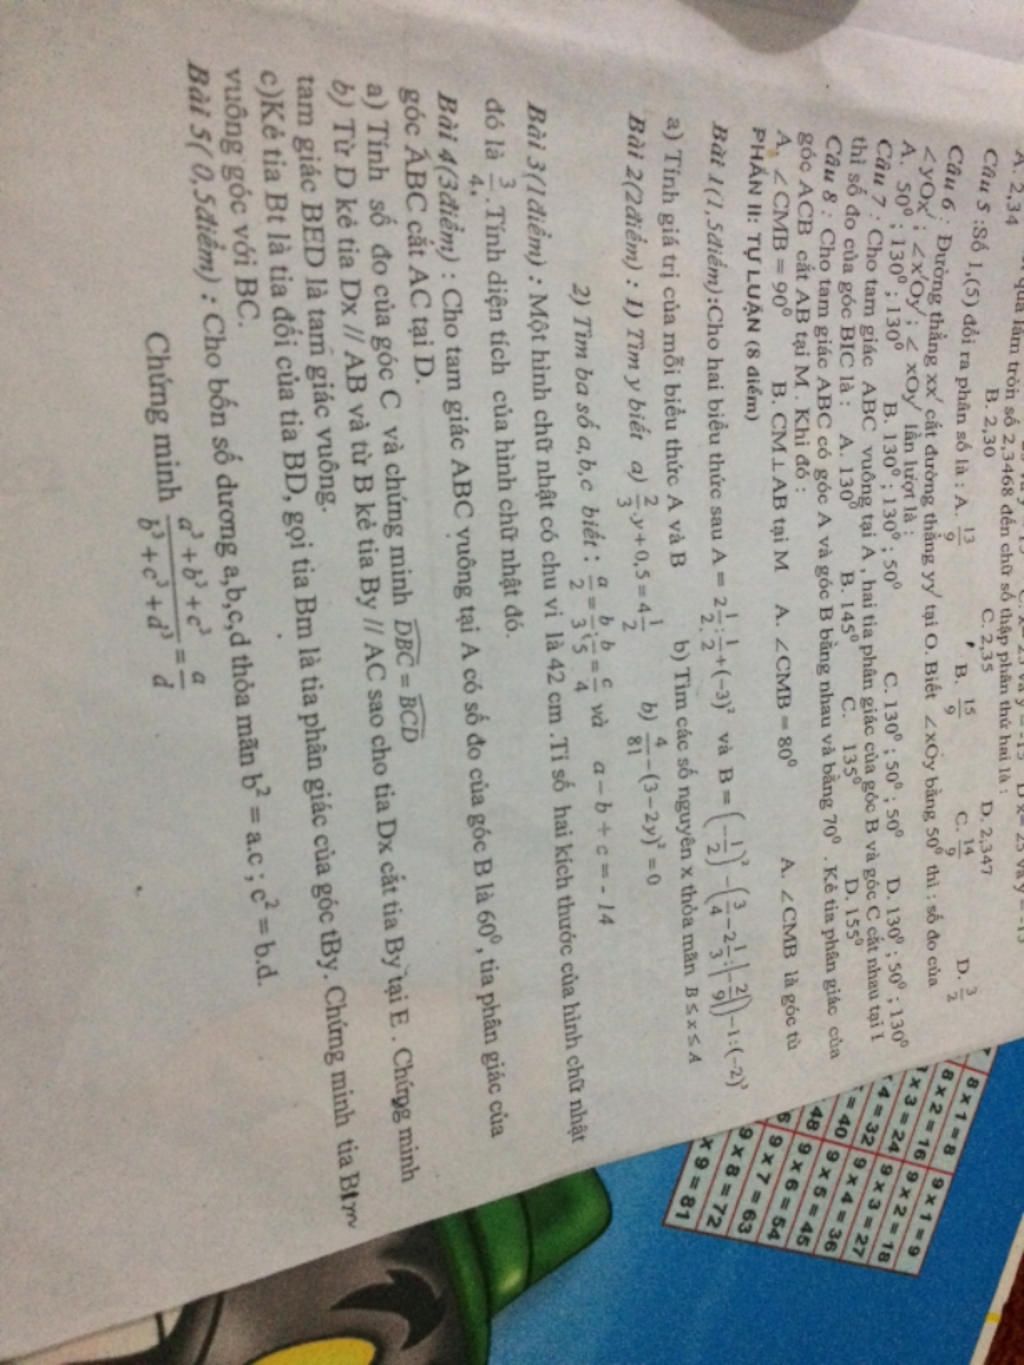 A. 2,34 B. 2,30 C. 2,35 D. 2,347
Câu 5 :Số 1,(5) đổi ra phân số là : A. 13/9 B. 15/9 C. 14/9 D. 3/2
Câu 6 : Đường thẳng xx' cắt đường thẳng yy' tại O. Biết ∠xOy bằng 50⁰ thì ; số đo của
∠yOx' ; ∠x'Oy' ; ∠ xOy' lần lượt là :
A. 50⁰ ; 130⁰ ; 130⁰ B. 130⁰ ; 130⁰ ; 50⁰ C. 130⁰ ; 50⁰ ; 50⁰ D. 130⁰ ; 50⁰ ; 130⁰
Câu 7 : Cho tam giác ABC vuông tại A , hai tia phân giác của góc B và góc C cắt nhau tại I
thì số đo của góc BIC là : A. 130⁰ B. 145⁰ C. 135⁰ D. 155⁰
Câu 8 : Cho tam giác ABC có góc A và góc B bằng nhau và bằng 70⁰ . Kẻ tia phân giác của
góc ACB cắt AB tại M . Khi đó :
A. ∠CMB = 90⁰ B. CM⊥AB tại M A. ∠CMB = 80⁰ A. ∠CMB là góc tù
PHẦN II: TỰ LUẬN (8 điểm)
Bài 1(1,5điểm):Cho hai biểu thức sau A = 2 1/2 : 1/2 + (−3)² và B = (−1/2)² − (3/4 − 2 1/3 : |−2/9|) − 1 : (−2)³
a) Tính giá trị của mỗi biểu thức A và B b) Tìm các số nguyên x thỏa mãn B ≤ x ≤ A
Bài 2(2điểm) : 1) Tìm y biết a) 2/3 .y + 0,5 = 4 1/2 b) 4/81 − (3 − 2y)² = 0
2) Tìm ba số a,b,c biết : a/2 = b/3 ; b/5 = c/4 và a − b + c = - 14
Bài 3(1điểm) : Một hình chữ nhật có chu vi là 42 cm .Tỉ số hai kích thước của hình chữ nhật
đó là 3/4 . Tính diện tích của hình chữ nhật đó.
Bài 4(3điểm) : Cho tam giác ABC vuông tại A có số đo của góc B là 60⁰ , tia phân giác của
góc ABC cắt AC tại D.
a) Tính số đo của góc C và chứng minh DBC = BCD
b) Từ D kẻ tia Dx // AB và từ B kẻ tia By // AC sao cho tia Dx cắt tia By tại E . Chứng minh
tam giác BED là tam giác vuông.
c)Kẻ tia Bt là tia đối của tia BD, gọi tia Bm là tia phân giác của góc tBy. Chứng minh tia Bm
vuông góc với BC.
Bài 5( 0,5điểm) : Cho bốn số dương a,b,c,d thỏa mãn b² = a.c ; c² = b.d.
Chứng minh (a³ + b³ + c³)/(b³ + c³ + d³) = a/d
8 x 1 = 8 9 x 1 = 9
8 x 2 = 16 9 x 2 = 18
x 3 = 24 9 x 3 = 27
4 = 32 9 x 4 = 36
= 40 9 x 5 = 45
48 9 x 6 = 54
9 x 7 = 63
9 x 8 = 72
x 9 = 81